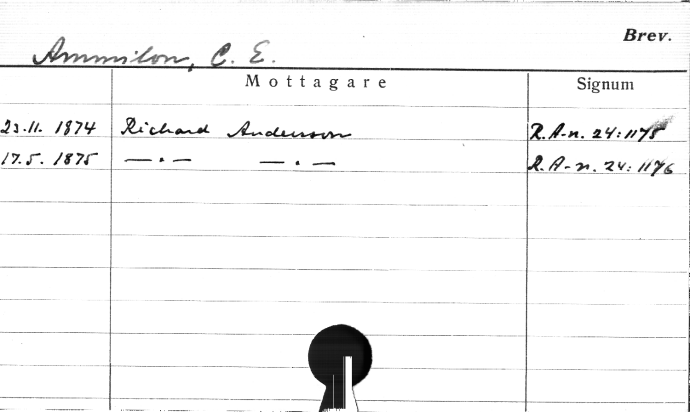 Brev.
Ammilon, C. E.
Mottagare Signum
23.11. 1874 Richard Anderson R.A-n. 24:1175
17.5. 1875 — • — — • — R.A-n. 24:1176